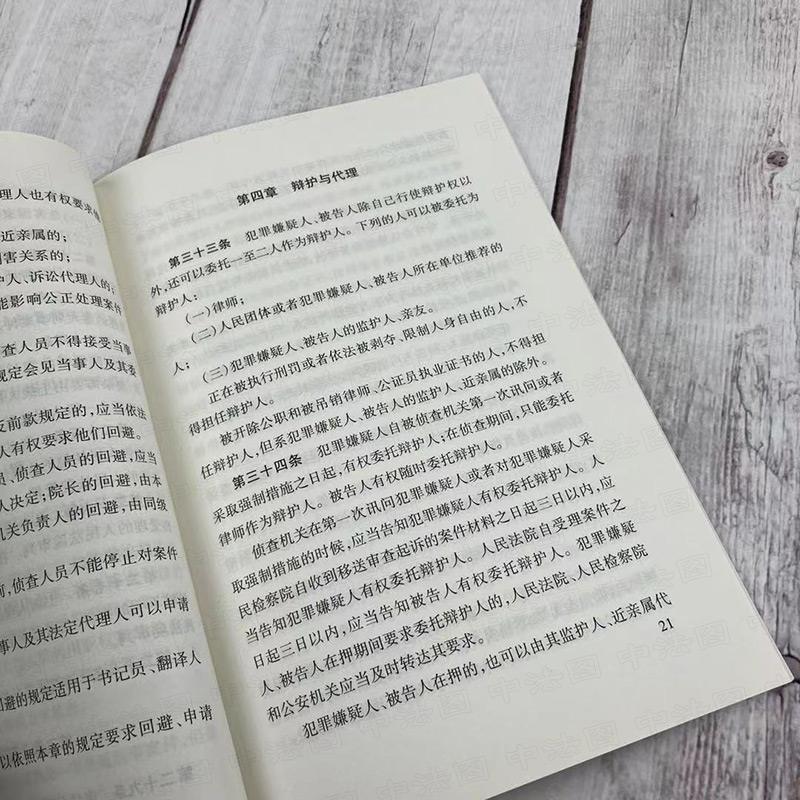 理人也有权要求
近亲属的；
害关系的；
护人、诉讼代理人的；
能影响公正处理案件
查人员不得接受当事
规定会见当事人及其委
反前款规定的，应当依法
人有权要求他们回避。
员、侦查人员的回避，应当
人决定；院长的回避，由本
机关负责人的回避，由同级
前，侦查人员不能停止对案件
事人及其法定代理人可以申请
回避的规定适用于书记员、翻译人
以依照本章的规定要求回避、申请
第四章 辩护与代理
第三十三条 犯罪嫌疑人、被告人除自己行使辩护权以
外，还可以委托一至二人作为辩护人。下列的人可以被委托为
辩护人：
（一）律师；
（二）人民团体或者犯罪嫌疑人、被告人所在单位推荐的
人；
（三）犯罪嫌疑人、被告人的监护人、亲友。
正在被执行刑罚或者依法被剥夺、限制人身自由的人，不
得担任辩护人。
被开除公职和被吊销律师、公证员执业证书的人，不得担
任辩护人，但系犯罪嫌疑人、被告人的监护人、近亲属的除外。
第三十四条 犯罪嫌疑人自被侦查机关第一次讯问或者
采取强制措施之日起，有权委托辩护人；在侦查期间，只能委托
律师作为辩护人。被告人有权随时委托辩护人。
侦查机关在第一次讯问犯罪嫌疑人或者对犯罪嫌疑人采
取强制措施的时候，应当告知犯罪嫌疑人有权委托辩护人。人
民检察院自收到移送审查起诉的案件材料之日起三日以内，应
当告知犯罪嫌疑人有权委托辩护人。人民法院自受理案件之
日起三日以内，应当告知被告人有权委托辩护人。犯罪嫌疑
人、被告人在押期间要求委托辩护人的，人民法院、人民检察院
和公安机关应当及时转达其要求。
犯罪嫌疑人、被告人在押的，也可以由其监护人、近亲属代
21